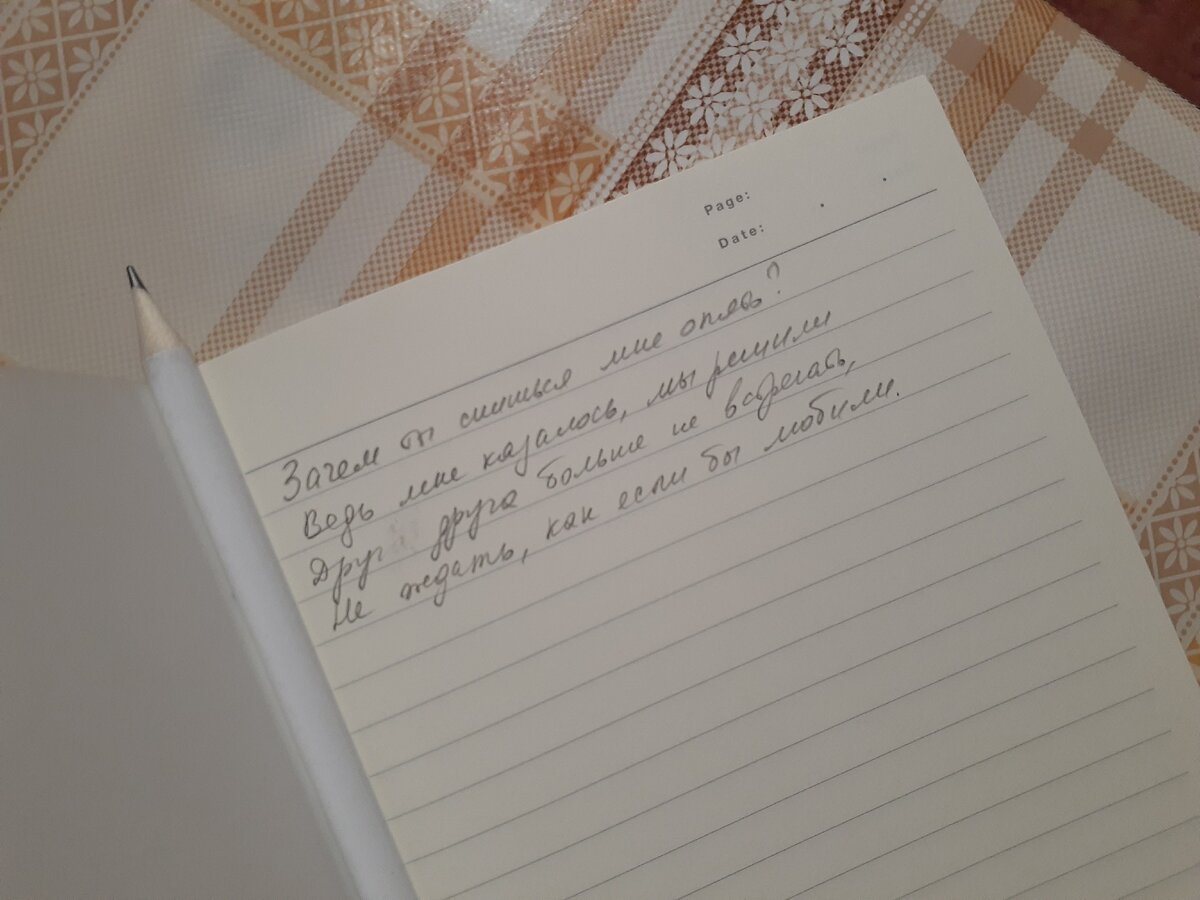 Page:
Date:
Зачем ты снишься мне опять?
Ведь мне казалось, мы решили
Друг друга больше не встречать,
Не ждать, как если бы любили.